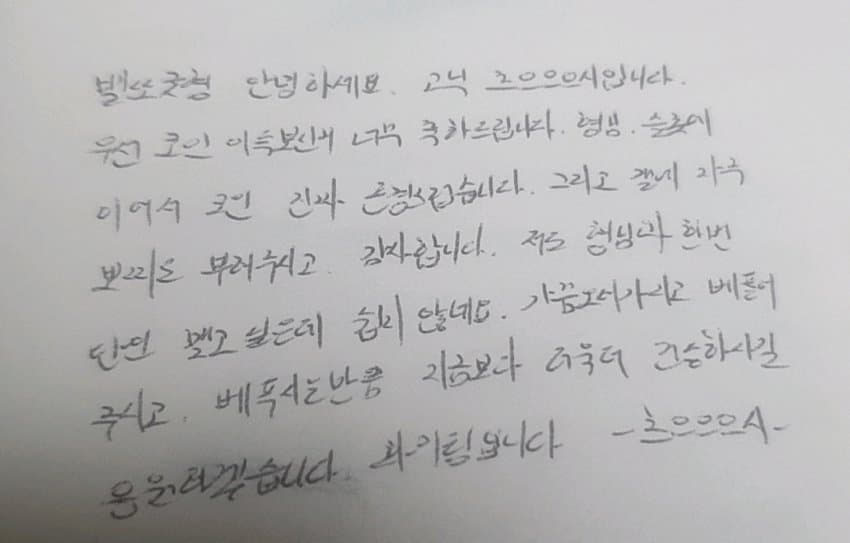 벨또굿형 안녕하세요. 고닉 초으으으시입니다.
우선 코인 이득보신거 너무 축하드립니다. 형님. 슬롯에
이어서 코인 진짜 존경스럽습니다. 그리고 갤에 자주
보찌도 뿌려주시고. 감사합니다. 저도 형님과 한번
단연 맺고 싶은데 쉽지 않네요. 가끔오셔가지고 베풀어
주시고. 베푸시는만큼 지금보다 더욱더 건승하시길
응원하겠습니다. 화이팅입니다 -초으으으시-